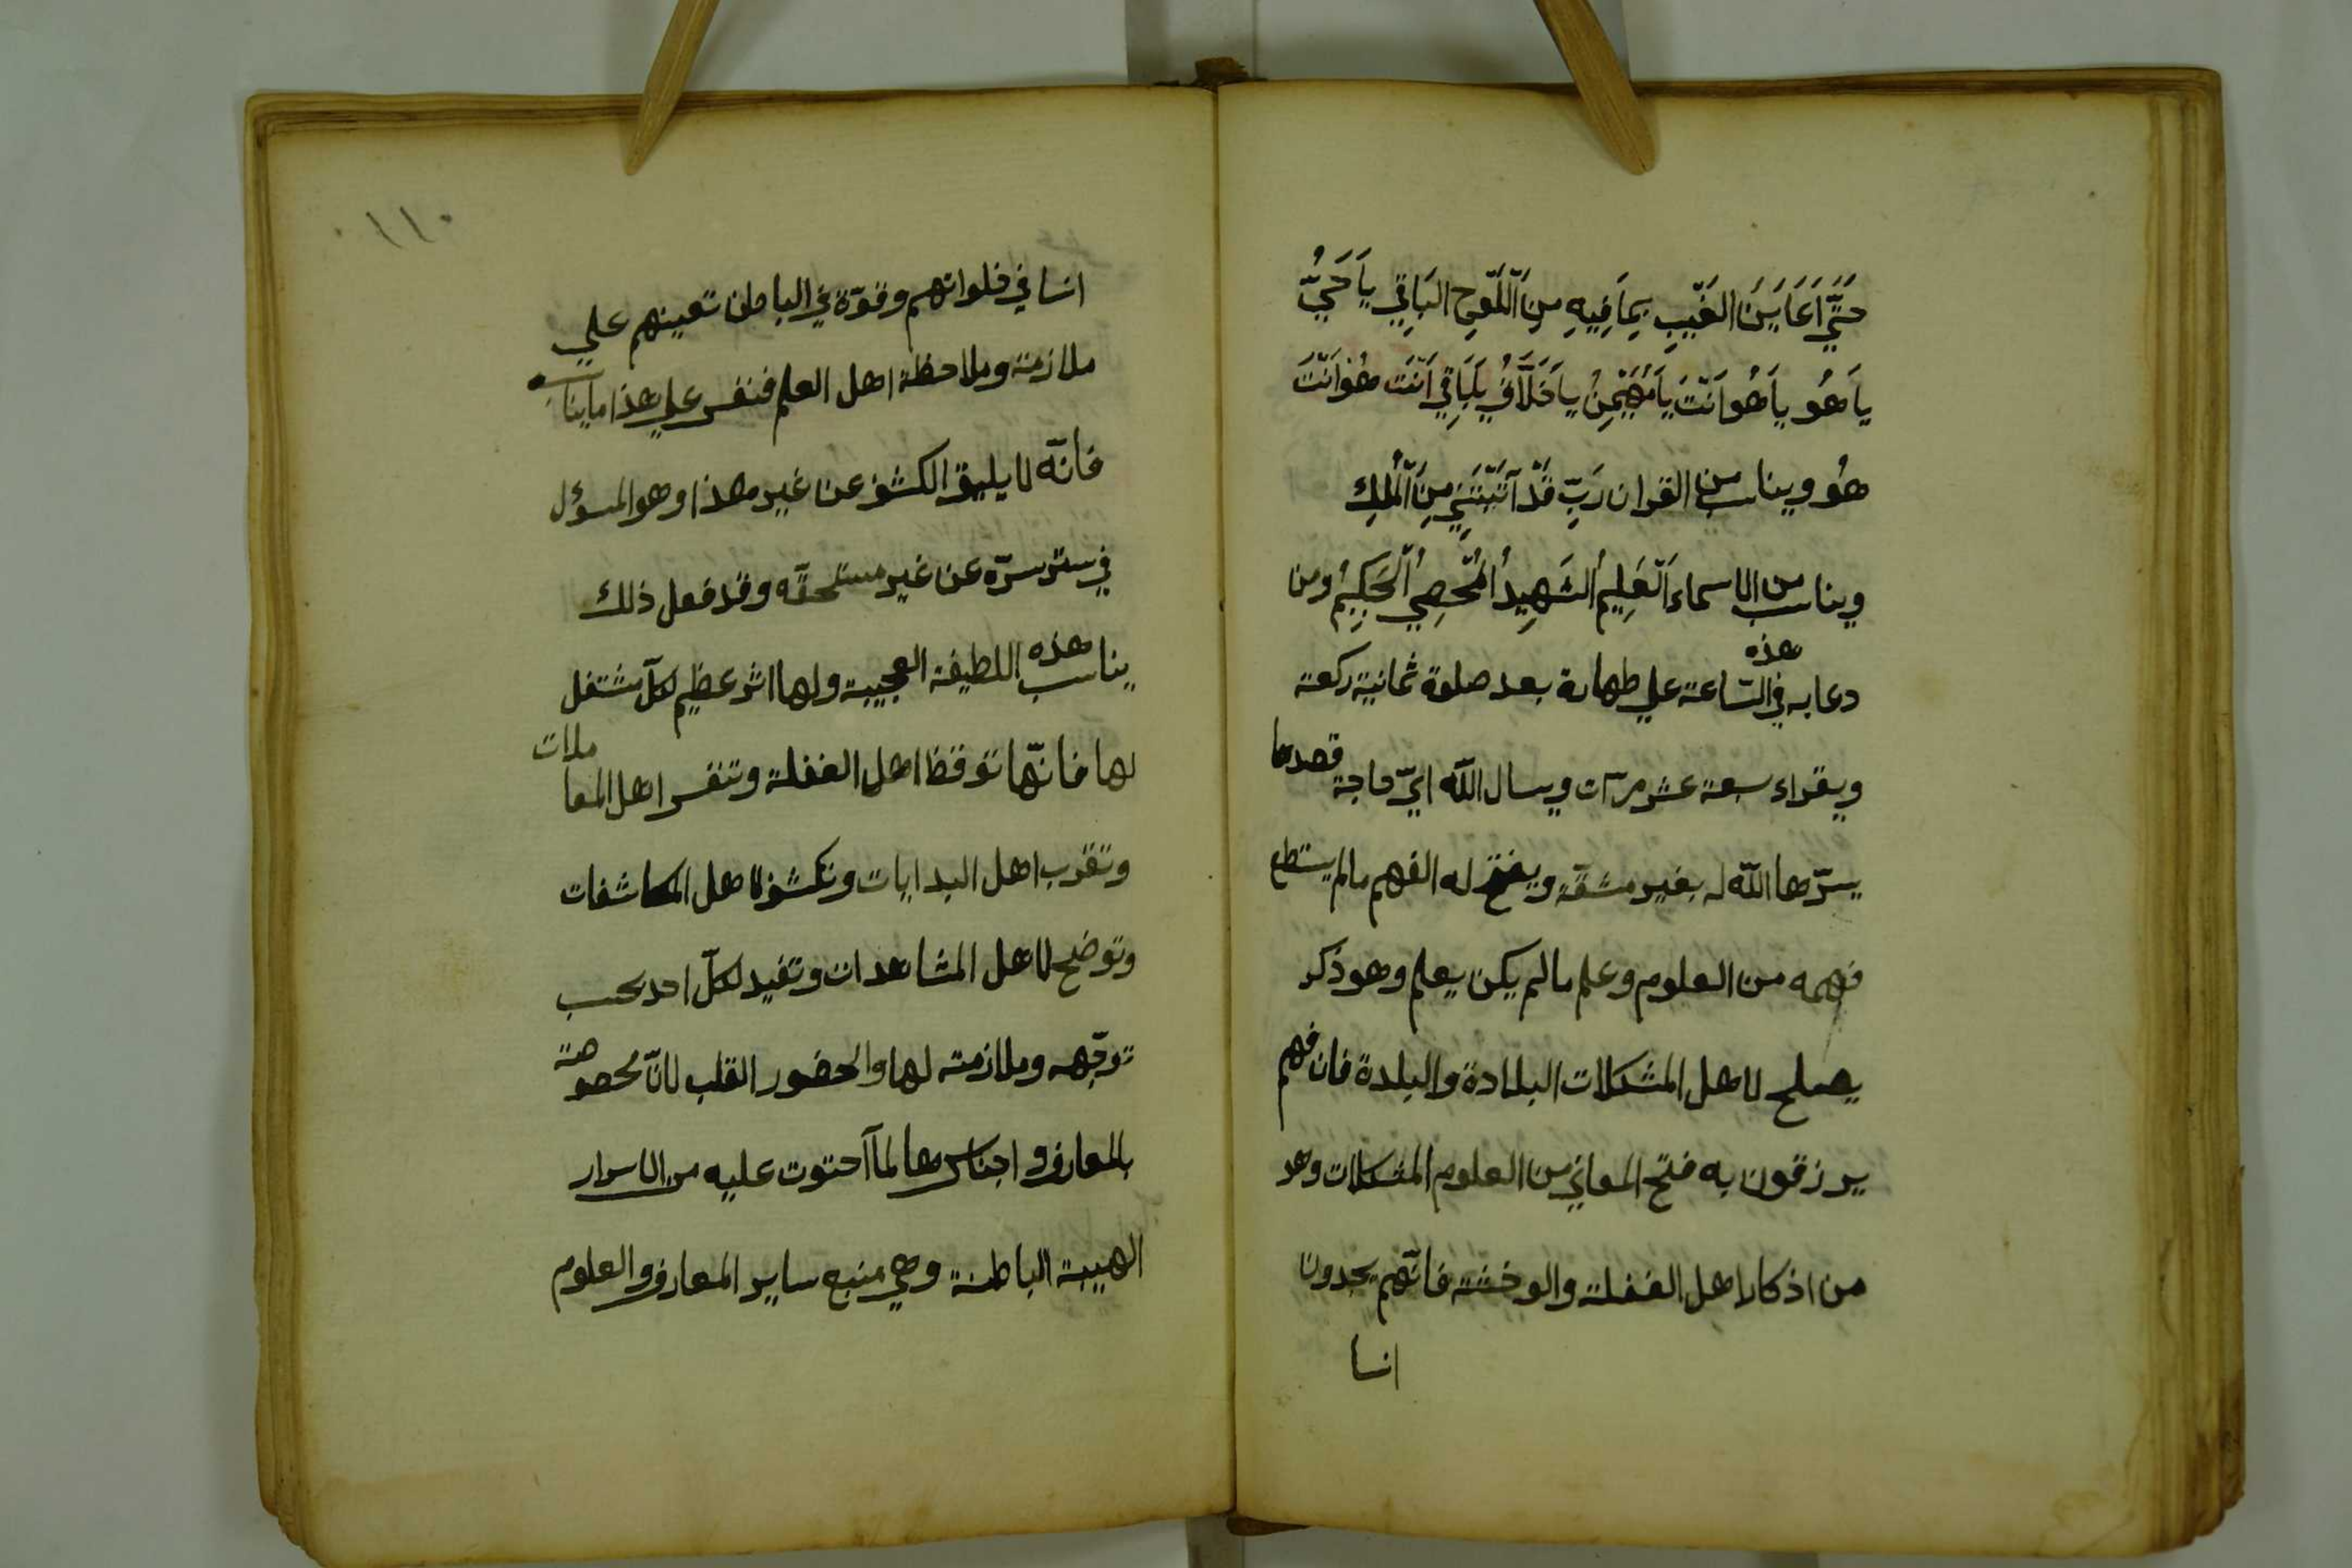 حَتَّي اَعَايِنَ الغَيْبِ بِمَا فِيهِ مِنَ اللَّوحِ البَاقِي يَا حَيُّ
يَا هُو يَا هُو اَنْتَ يَا مُهَيْمِنُ يَا خَلَّاقُ يَا بَاقِي اَنْتَ هُو اَنْتَ
هُو ويناسب من القران رَبِّ قَدْ آتَيْتَنِي مِنَ الْمُلكِ
ويناسب من الاسماء اَلْعَلِيمُ الشَهِيدُ الْمُحْصِي الْحَكِيمُ ومن
دعا به في هذه السّاعة علي طهارة بعد صلوة ثمانية ركعة
ويقراء سبعة عشر مرّات ويسال اللّه ايّ حاجة قصدها
يسّرها اللّه له بغير مشقّة ويفتح له الفهم مالم يستطع
فهمه من العلوم وعلم مالم يكن يعلم وهو ذكر
يصلح لاهل المشكلات البلادة والبلدة فان فهم
يرزقون به فتح المعاني من العلوم المشكلات وهو
من اذكار اهل الغفلة والوخشة فانّهم يجدون
انسا
١١٠
انسا في خلواتهم وقوّة في الباطن تعينهم علي
ملازمة وملاحظة اهل العلم فنفس علي هذا ما يناسب
فانّه لا يليق الكشف عن غير هذا وهو المسؤل
في ستر سرّه عن غير مستحقّه وقد فعل ذلك
يناسب هذه اللطيفة العجيبة ولها اثر عظيم لكلّ مشتغل
لها فانّها توقظ اهل الغفلة وتنفس اهل المعاملات
وتقرب اهل البدايات وتكشف لاهل المكاشفات
وتوضح لاهل المشاهدات وتفيد لكلّ احد بحسب
توجّهه وملازمته لها والحضور القلب لانّ مخصوصة
بالمعارف واجناسها لما آحتوت عليه من الاسرار
الهيبة الباطنة وهي منبع ساير المعارف والعلوم